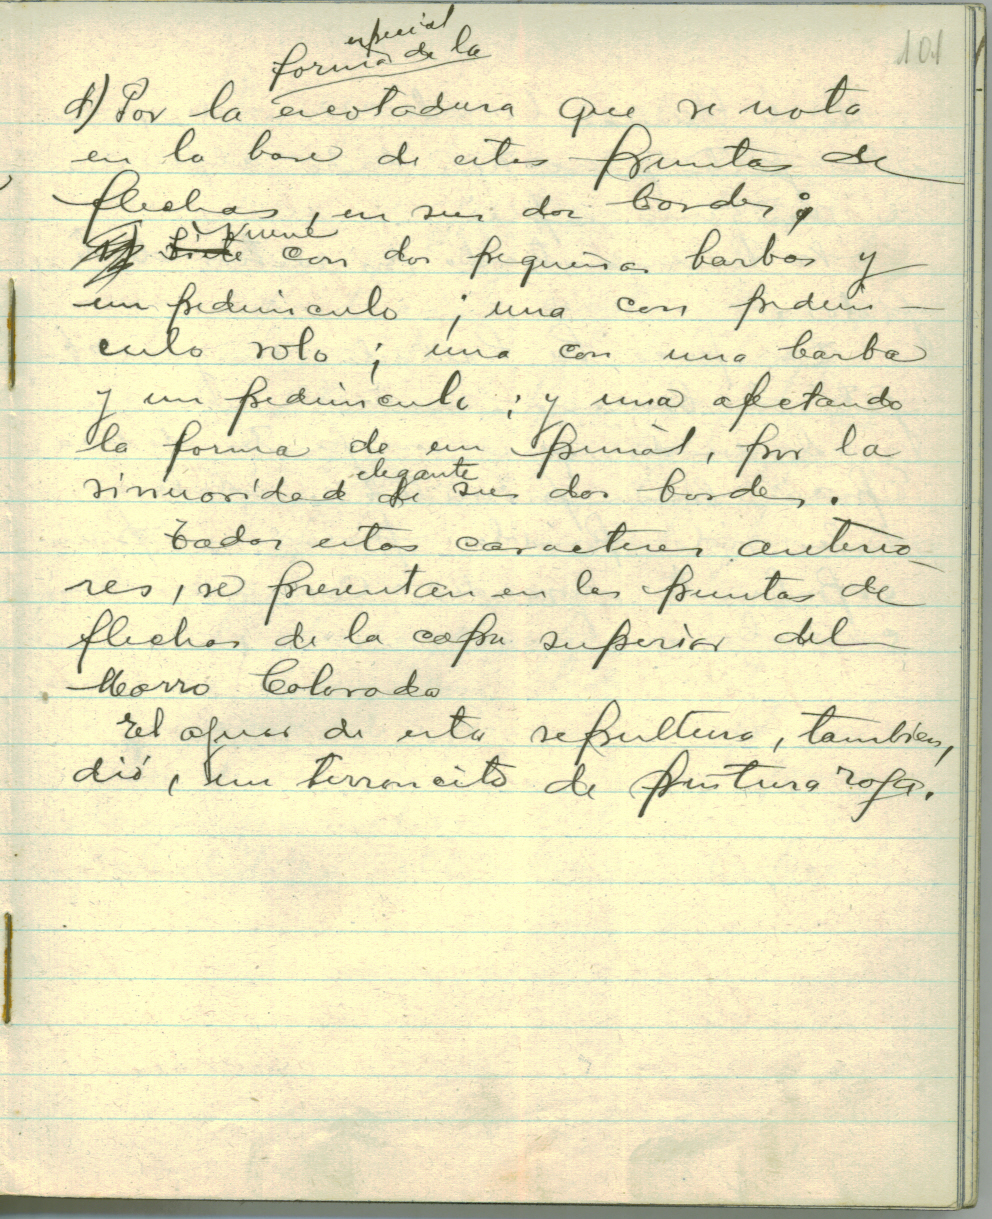 101
especial
forma de la
d) Por la escotadura que se nota
en la base de estas puntas de
flechas, en sus dos bordes;
siete nueve con dos pequeñas barbas y
un pedúnculo; una con pedún-
culo solo; una con una barba
y un pedúnculo; y una afectando
la forma de un puñal, por la
elegante
sinuosidad de sus dos bordes.
Todos estos caracteres anterio-
res, se presentan en las puntas de
flechas de la capa superior del
Morro Colorado
El ajuar de esta sepultura, también,
dió, un terroncito de pintura roja.